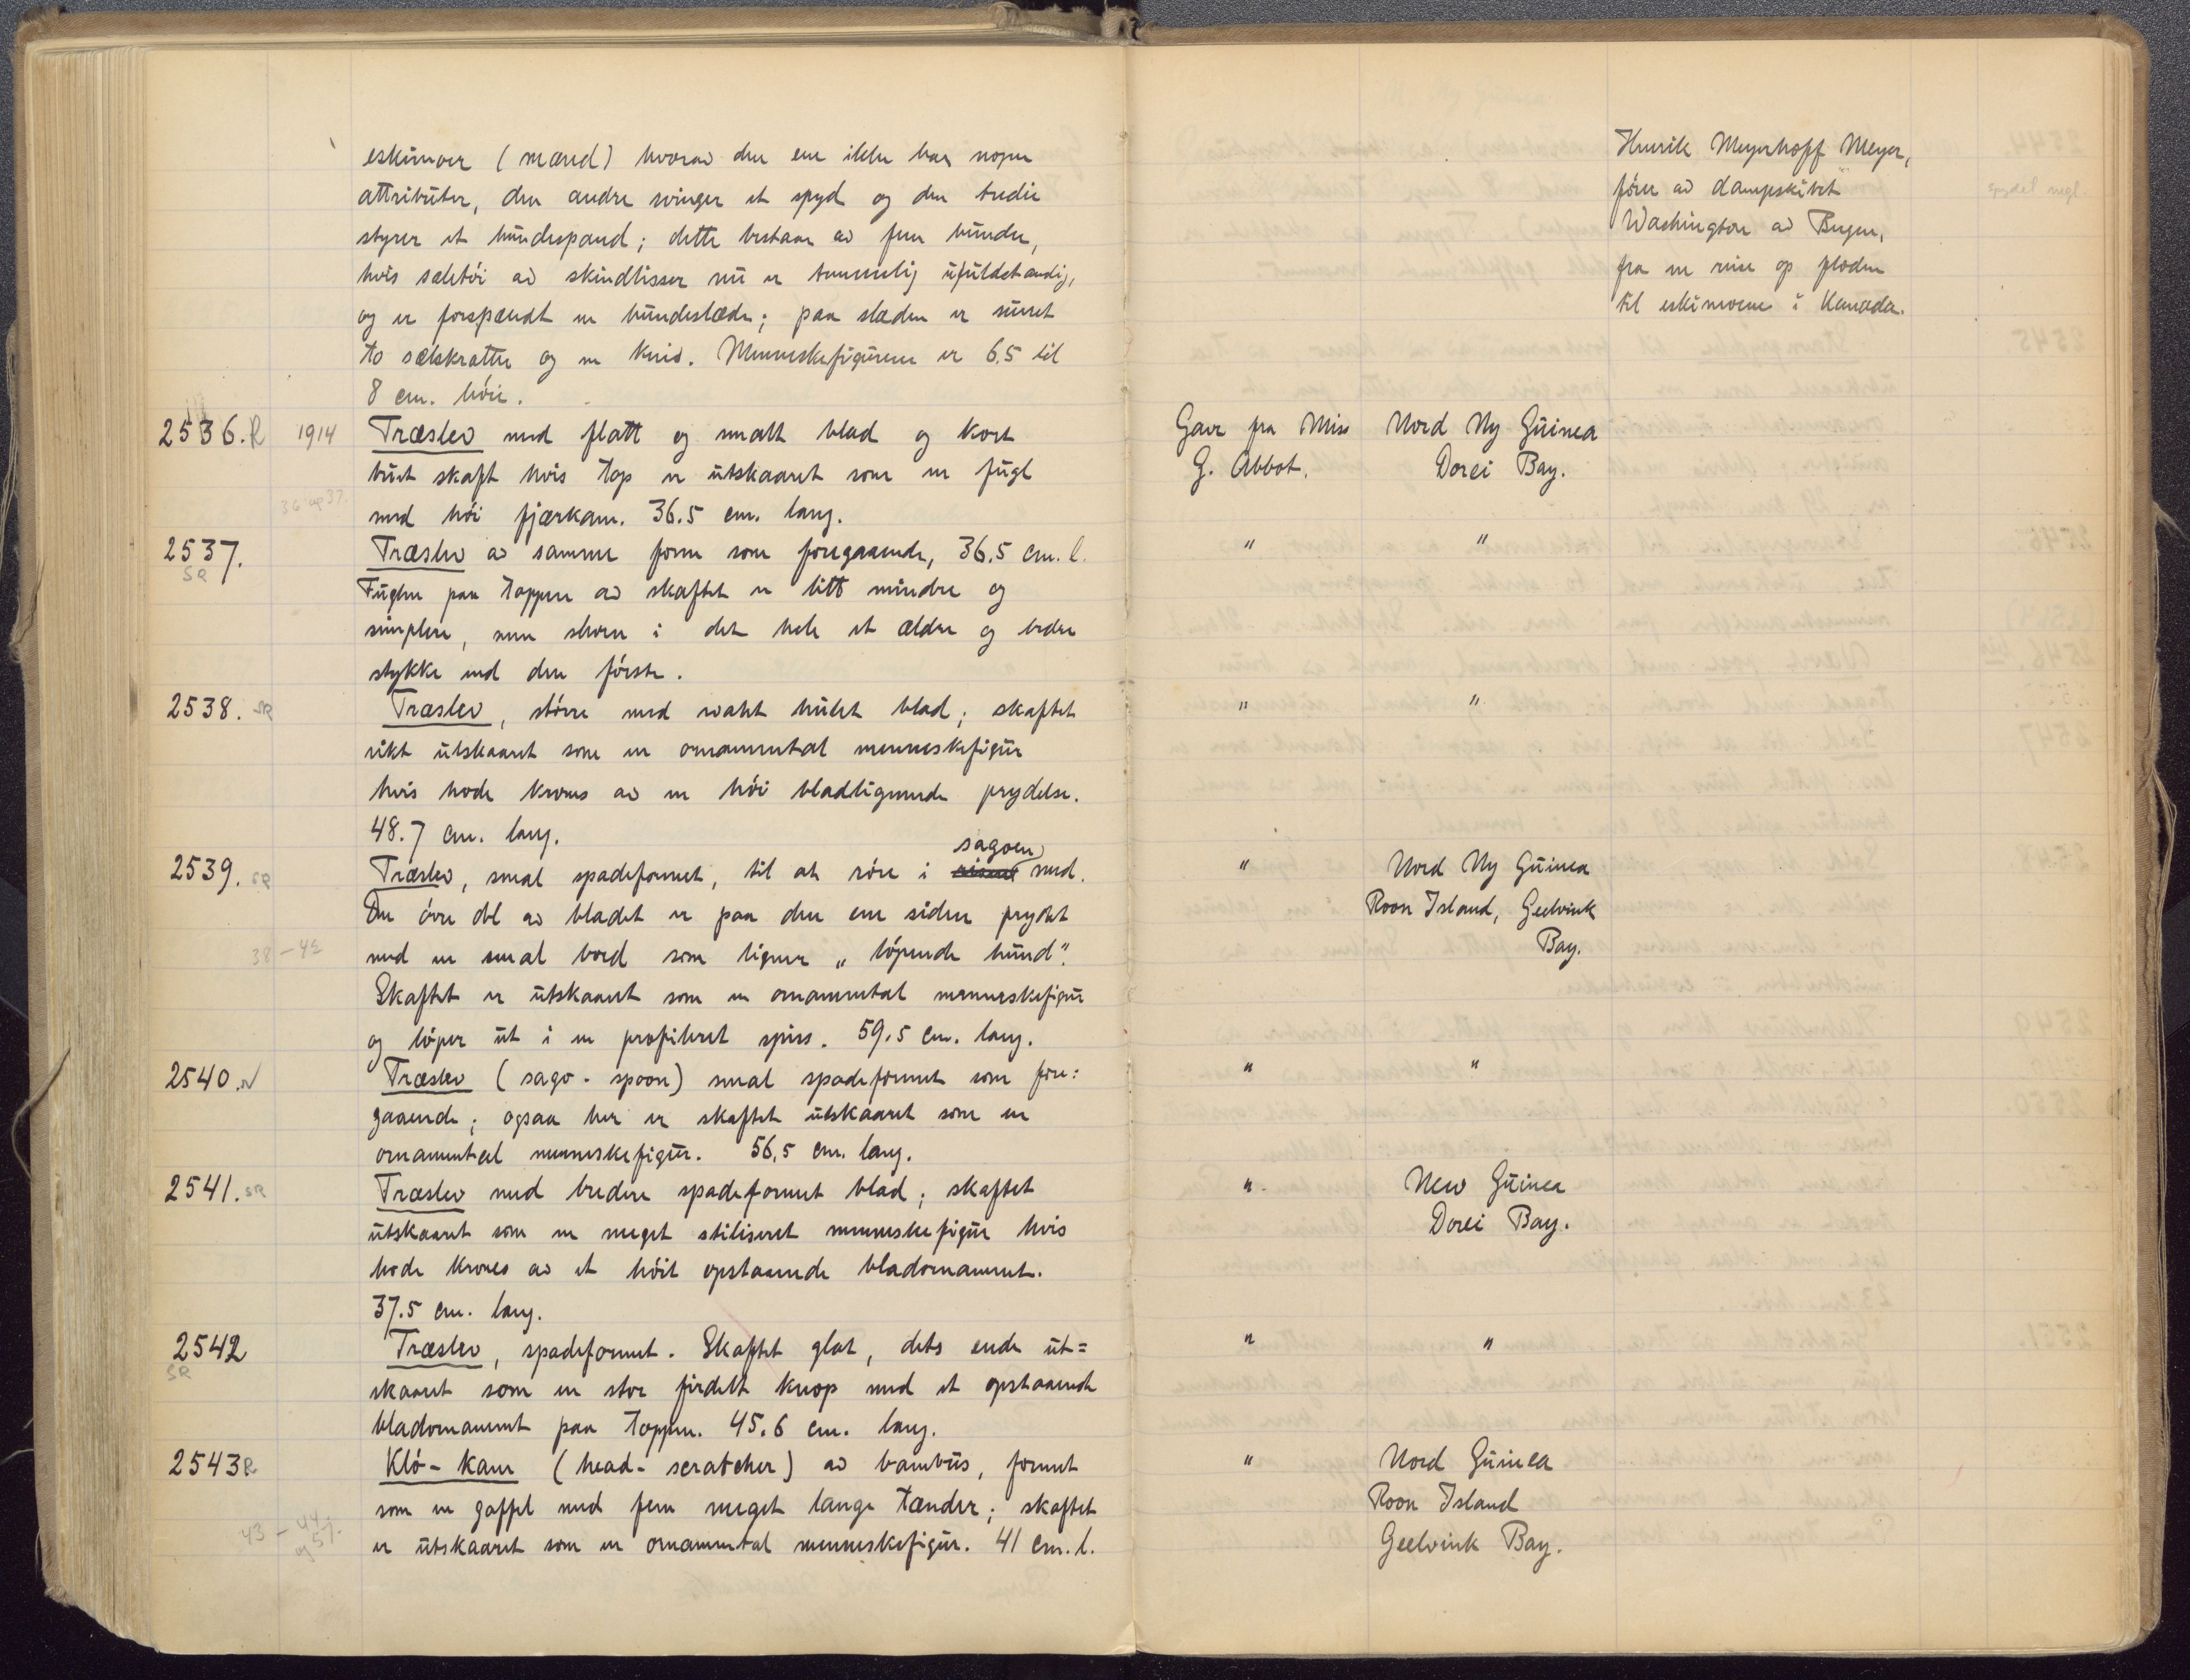 eskimoer (mænd) hvorav den ene ikke har nogen
attributer, den andre svinger et spyd og den tredie
styrer et hundespand; dette bestaar av fem hunder,
hvis seletøi av skindlisser nu er temmelig ufuldstændig,
og er forspændt en hundeslæde; paa slæden er surret
to sælskrotter og en kniv. Menneskefigurene er 6.5 til
8 cm. høie.
Henrik Meyerhoff Meyer,
fører av dampskibet
Washington av Bergen,
fra en reise op floden
til eskimoene i Kanada.
spydet mgl.
2536. R 1914 Træslev med flatt og smalt blad og kort Gave fra Miss Nord Ny Guinea
buet skaft hvis top er utskaaret som en fugl G. Abbot. Dorei Bay.
36 og 37.
med høi fjærkam. 36.5 cm. lang.
2537. Træslev av samme form som foregaaende, 36.5 cm. l. " "
SR
Fuglen paa toppen av skaftet er litt mindre og
simplere, men skeen i det hele et ældre og bedre
stykke end den første.
2538. SR Træslev, større med svakt hulet blad; skaftet " "
rikt utskaaret som en ornamental menneskefigur
hvis hode krones av en høi bladlignende prydelse.
48.7 cm. lang.
sagoen
2539. SR Træslev, smal spadeformet, til at røre i risen med. " Nord Ny Guinea
Den øvre del av bladet er paa den ene siden prydet Roon Island, Geelvink
38 – 42 med en smal bord som ligner „løpende hund". Bay.
Skaftet er utskaaret som en ornamental menneskefigur
og løper ut i en profileret spiss. 59.5 cm. lang.
2540. N Træslev (sago-spoon) smal spadeformet som fore: " "
gaaende; ogsaa her er skaftet utskaaret som en
ornamental menneskefigur. 56,5 cm. lang.
2541. SR Træslev med bredere spadeformet blad; skaftet " New Guinea
utskaaret som en meget stiliseret menneskefigur hvis Dorei Bay.
hode krones av et høit opstaaende bladornament.
37.5 cm. lang.
2542 Træslev, spadeformet. Skaftet glat, dets ende ut= " "
SR
skaaret som en stor firdelt knop med et opstaaende
bladornament paa toppen. 45.6 cm. lang.
2543 R Klø-kam (head-scratcher) av bambus, formet " Nord Guinea
som en gaffel med fem meget lange tænder; skaftet Roon Island
43 – 44 og 57.
er utskaaret som en ornamental menneskefigur. 41 cm. l. Geelvink Bay.